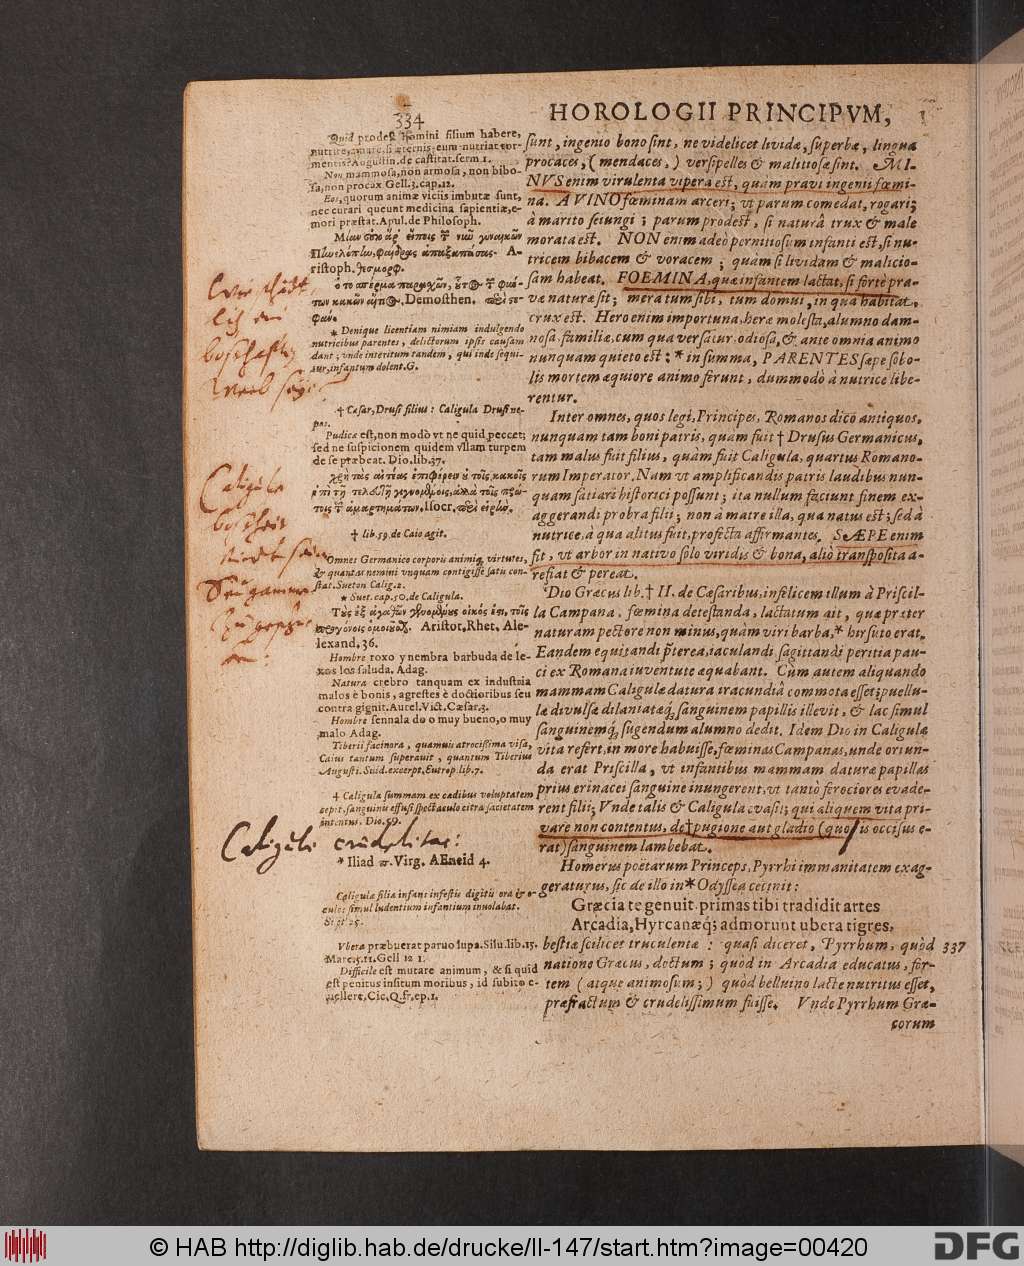 334
HOROLOGII PRINCIPVM,
Quid prodest homini filium habere,
nutrire, amare, si æternis eum nutriat tor-
mentis? Augustin. de castitat. serm. 1.
Non mammosa, non armosa, non bibo-
sa, non procax Gell. 3. cap. 12.
Eos, quorum animæ vitiis imbutæ sunt,
nec curari queunt medicina sapientiæ, e-
mori præstat. Apul. de Philosoph.
A-
ristoph.
Demosthen.
* Denique licentiam nimiam indulgendo
nutricibus parentes, delictorum ipsis causam
dant; vnde interitum tandem, qui inde sequi-
tur, infantum dolent. G.
† Cæsar, Drusi filius: Caligula Drusi ne-
pos.
Pudica est, non modò vt ne quid peccet;
sed ne suspicionem quidem vllam turpem
de se præbeat. Dio. lib. 37.
Isocr.
† lib. 59. de Caio agit.
Omnes Germanico corporis animiq, virtutes,
& quantas nemini vnquam contigisse satis con-
stat. Sueton Calig. 2.
* Suet. cap. 50. de Caligula.
Aristot. Rhet. Ale-
lexand. 36.
Hombre roxo y nembra barbuda de le-
xos los saluda. Adag.
Natura crebro tanquam ex industria
malos è bonis, agrestes è doctioribus seu
contra gignit. Aurel. Vict. Cæsar. 3.
Hombre sennala do o muy bueno, o muy
malo Adag.
Tiberii facinora, quamuis atrocissima visa,
Caius tantum superauit, quantum Tiberius
Augusti. Suid. excerpt. Eutrop. lib. 7.
† Caligula summam ex cædibus voluptatem
cepit, sanguinis effusi spectaculo citra satietatem
intentus. Dio. 59.
Caligulæ crudelitas:
* Iliad π. Virg. AEneid 4.
Caligulæ filia infans infestis digitis ora & o-
culos simul ludentium infantium inuolabat.
25.
Vbera præbuerat paruo lupa. Silu. lib. 15.
Marc. 5. 11. Gell 12 1.
Difficile est mutare animum, & si quid
est penitus insitum moribus, id subito e-
uellere. Cic. Q. fr. ep. 1.
sunt, ingenio bono sint, ne videlicet lividæ, superbæ, lingua
procaces, (mendaces,) versipelles & malitiosæ sint. MI-
NVS enim virulenta vipera est, quàm pravi ingenii fœmi-
na. A VINO fœminam arceri; vt parum comedat, rogari;
à marito seiungi; parum prodest, si naturâ trux & male
morata est. NON enim adeò pernitiosum infanti est, si nu-
tricem bibacem & voracem; quàm si lividam & malicio-
sam habeat. FOEMINA, quæ infantem lactat, si fortè pra-
væ naturæ sit; mera tum sibi, tum domui, in qua habitat,
crux est. Hero enim importuna, heræ molesta, alumno dam-
nosa, familiæ, cum qua versatur, odiosa, & ante omnia animo
nunquam quieto est: * in summa, PARENTES sæpe sobo-
lis mortem æquiore animo ferunt, dummodò à nutrice libe-
rentur.
Inter omnes, quos legi, Principes, Romanos dico antiquos,
nunquam tam boni patris, quam fuit † Drusus Germanicus,
tam malus fuit filius, quàm fuit Caligula, quartus Romano-
rum Imperator. Nam vt amplificandis patris laudibus nun-
quam satiari historici possunt; ita nullum faciunt finem ex-
aggerandi probra filii; non à matre illa, qua natus est; sed à
nutrice, à qua alitus fuit, profecta affirmantes. SÆPE enim
fit, vt arbor in nativo solo viridis & bona, aliò transposita a-
refiat & pereat.
Dio Græcus lib. † II. de Cæsaribus, infelicem illum à Priscil-
la Campana, fœmina detestanda, lactatum ait, quæ præter
naturam pectore non minus, quàm viri barba, * hirsuto erat.
Eandem equitandi præterea, iaculandi sagittandi peritia pau-
ci ex Romana iuventute æquabant. Cùm autem aliquando
mammam Caligulæ datura iracundiâ commota esset; puellu-
læ divulsæ dilaniatæq; sanguinem papillis illevit, & lac simul
sanguinemq; sugendum alumno dedit. Idem Dio in Caligulæ
vita refert, in more habuisse, fœminas Campanas, unde oriun-
da erat Priscilla, vt infantibus mammam daturæ papillas
prius erinacei sanguine inungerent, vt tantò ferociores evade-
rent filii; Vnde talis & Caligula evasit; qui aliquem vita pri-
vare non contentus, de † pugione aut gladio (quo is occisus e-
rat) sanguinem lambebat.
Homerus poëtarum Princeps, Pyrrhi immanitatem exag-
geraturus, sic de illo in * Odyssea cecinit:
Græcia te genuit, primas tibi tradidit artes
Arcadia, Hyrcanæq; admorunt ubera tigres,
bestiæ scilicet truculentæ: quasi diceret, Pyrrhum, quòd 337
natione Græcus, doctum; quòd in Arcadia educatus, for-
tem (atque animosum;) quòd belluino lacte nutritus esset,
præfractum & crudelissimum fuisse. Vnde Pyrrhum Græ-
corum
© HAB http://diglib.hab.de/drucke/ll-147/start.htm?image=00420
DFG